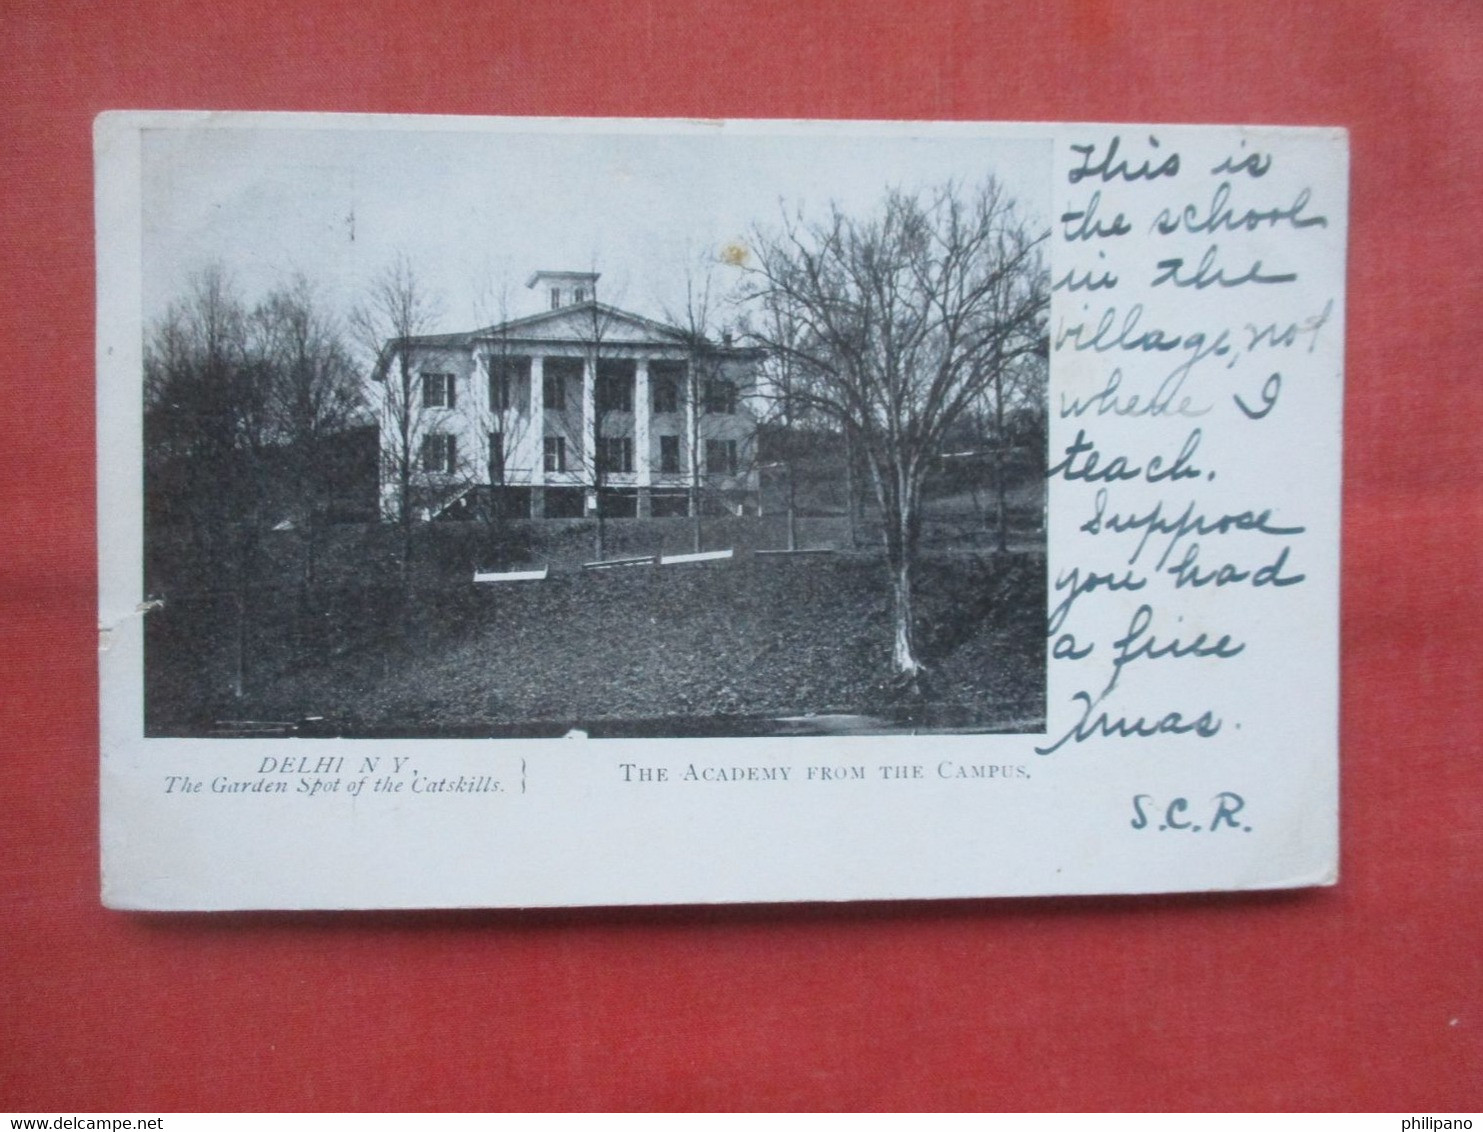 This is
the school
in the
village, not
where I
teach.
Suppose
you had
a fine
Xmas.
S.C.R.
DELHI N Y,
The Garden Spot of the Catskills.
THE ACADEMY FROM THE CAMPUS.
www.delcampe.net
philipano